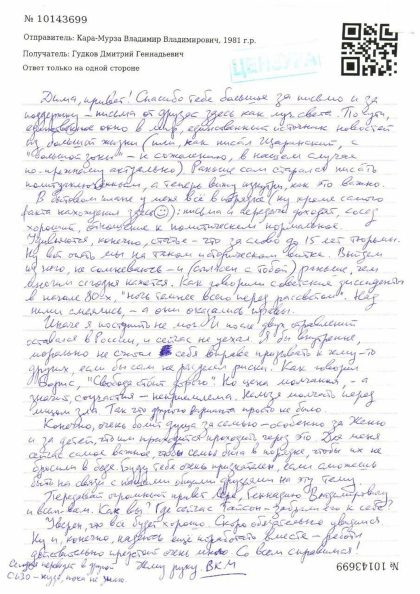 № 10143699
Отправитель: Кара-Мурза Владимир Владимирович, 1981 г.р.
Получатель: Гудков Дмитрий Геннадьевич
Ответ только на одной стороне
ЦЕНЗУРА
Дима, привет! Спасибо тебе большое за письмо и за
поддержку – письма от друзей здесь как луч света. По сути,
единственное окно в мир, единственный источник новостей
из большой жизни (или, как писал Щаранский, с
"большой зоны" – к сожалению, в нашем случае
по-прежнему актуально). Раньше сам старался писать
политзаключенным, а теперь вижу изнутри, как это важно.
В бытовом плане у меня все в порядке (ну кроме самого
факта нахождения здесь): письма и передачи доходят, сосед
хороший, отношение к политическим нормальное.
Удивляются, конечно, статье – что за слово до 15 лет тюрьмы.
Ну вот опять мы на таком историческом витке. Выйдем
из него, не сомневаюсь – и (согласен с тобой) раньше, чем
многим сегодня кажется. Как говорили советские диссиденты
в начале 80-х, "ночь темнее всего перед рассветом". Над
ними смеялись, – а они оказались правы.
Иначе я поступить не мог. И после двух отравлений
оставался в России, и сейчас не уехал. Я бы внутренне,
морально не считал себя вправе призывать к чему-то
других, если бы сам не разделял риски. Как говорил
Борис, "Свобода стоит дорого". Но цена молчания, – а
значит, соучастия – неприемлема. Нельзя молчать перед
лицом зла. Так что другого варианта просто не было.
Конечно, очень болит душа за семью – особенно за Женю
и за детей, что им приходится проходить через это. Для меня
сейчас самое важное, чтобы семья была в порядке, чтобы их не
бросили в беде. Буду тебе очень признателен, если сможешь
быть на связи с нашими общими друзьями на эту тему.
Передавай огромный привет Лере, Геннадию Владимировичу
и всем вам. Как вы? Где сейчас Тайсон – забрали его к себе?
Уверен, что все будет хорошо. Скоро обязательно увидимся
Ну и, конечно, надеюсь ещё поработать вместе – работы
действительно предстоит очень много. Со всем справимся!
Сегодня переводят в другой
СИЗО – куда, пока не знаю
Жму руку ВКМ
№ 10143699